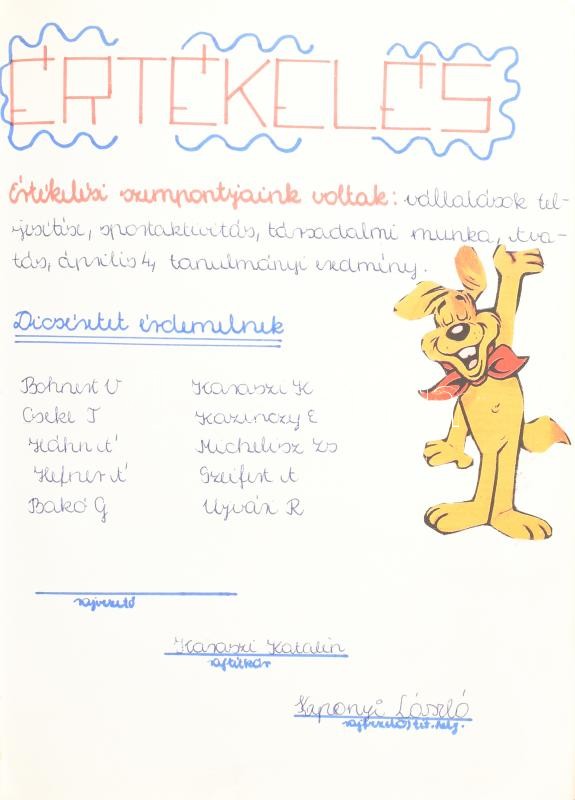 ÉRTÉKELÉS
Értékelési szempontjaink voltak: vállalások tel-
jesítése, sportaktivitás, társadalmi munka, ava-
tás, április 4, tanulmányi eredmény.
Dicséretet érdemelnek
Bohnert V Karaszi K
Cseke T Kazinczy E
Háhn Á Michelisz Zs
Hefner Á Szeifert A
Bakó G Ujvári R
rajvezető
Karaszi Katalin
rajtitkár
Kaponyi László
rajvezető tit. hely.